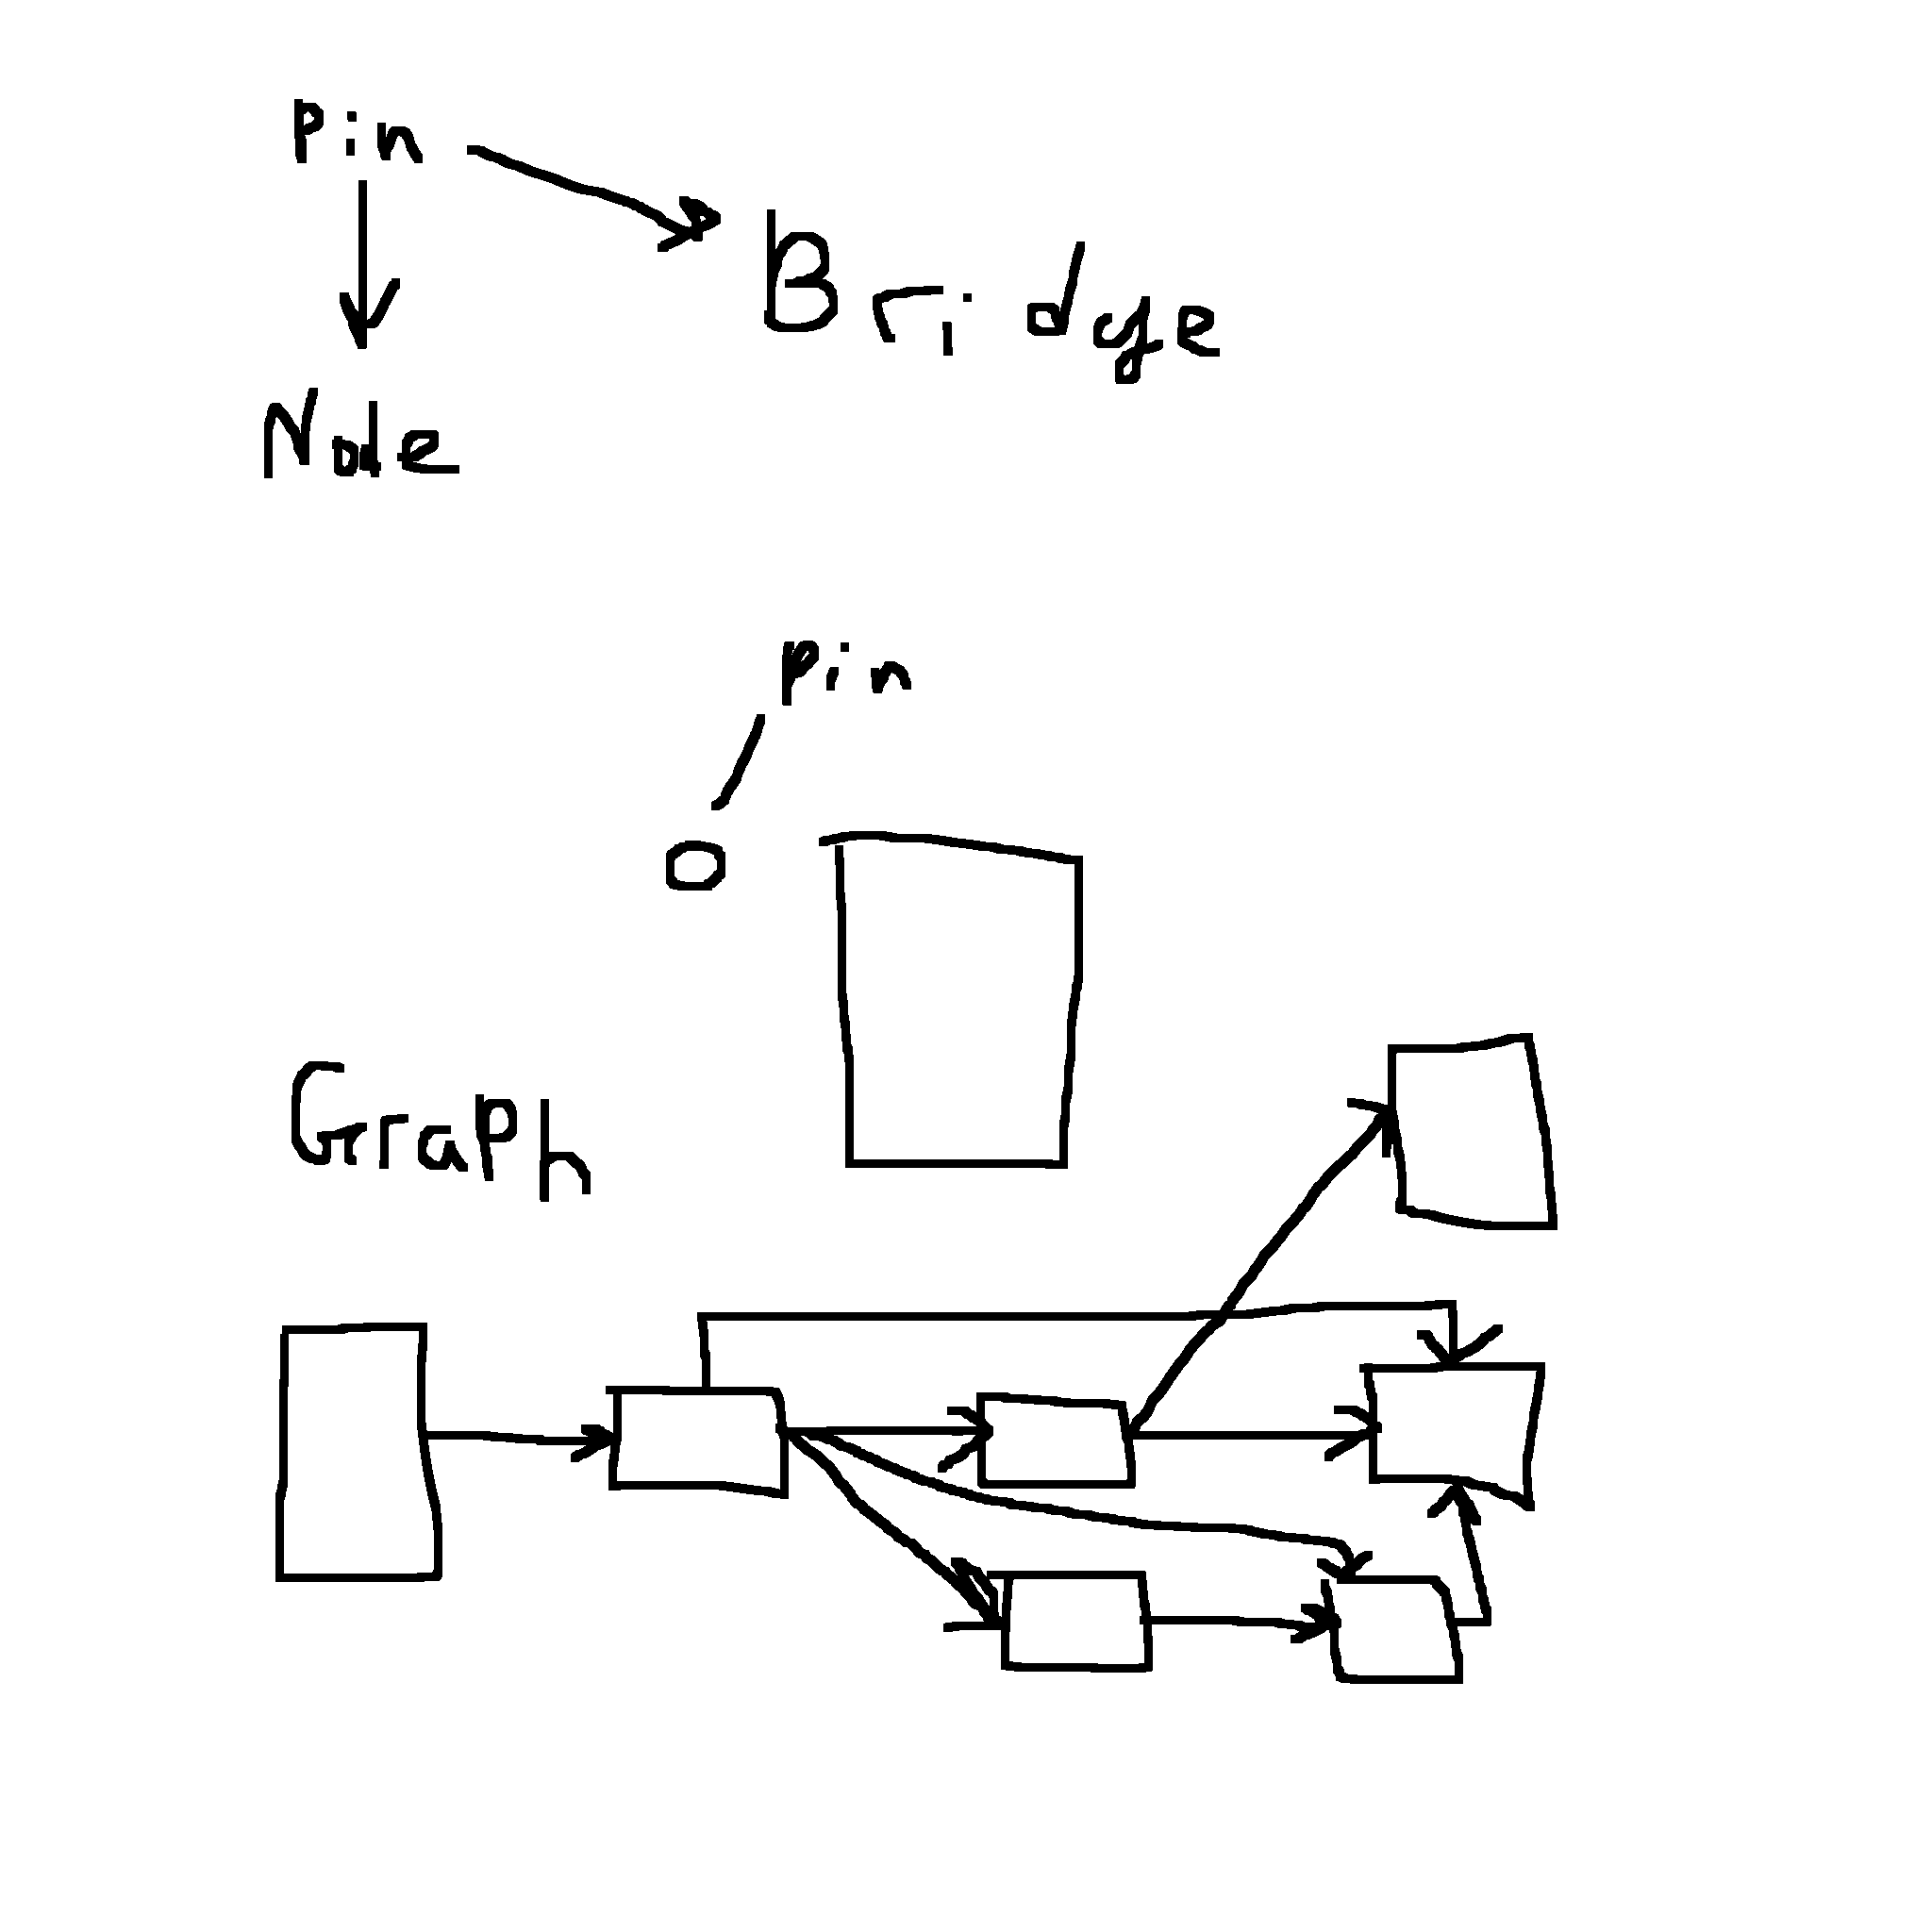 Pin
Bridge
Node
Pin
Graph